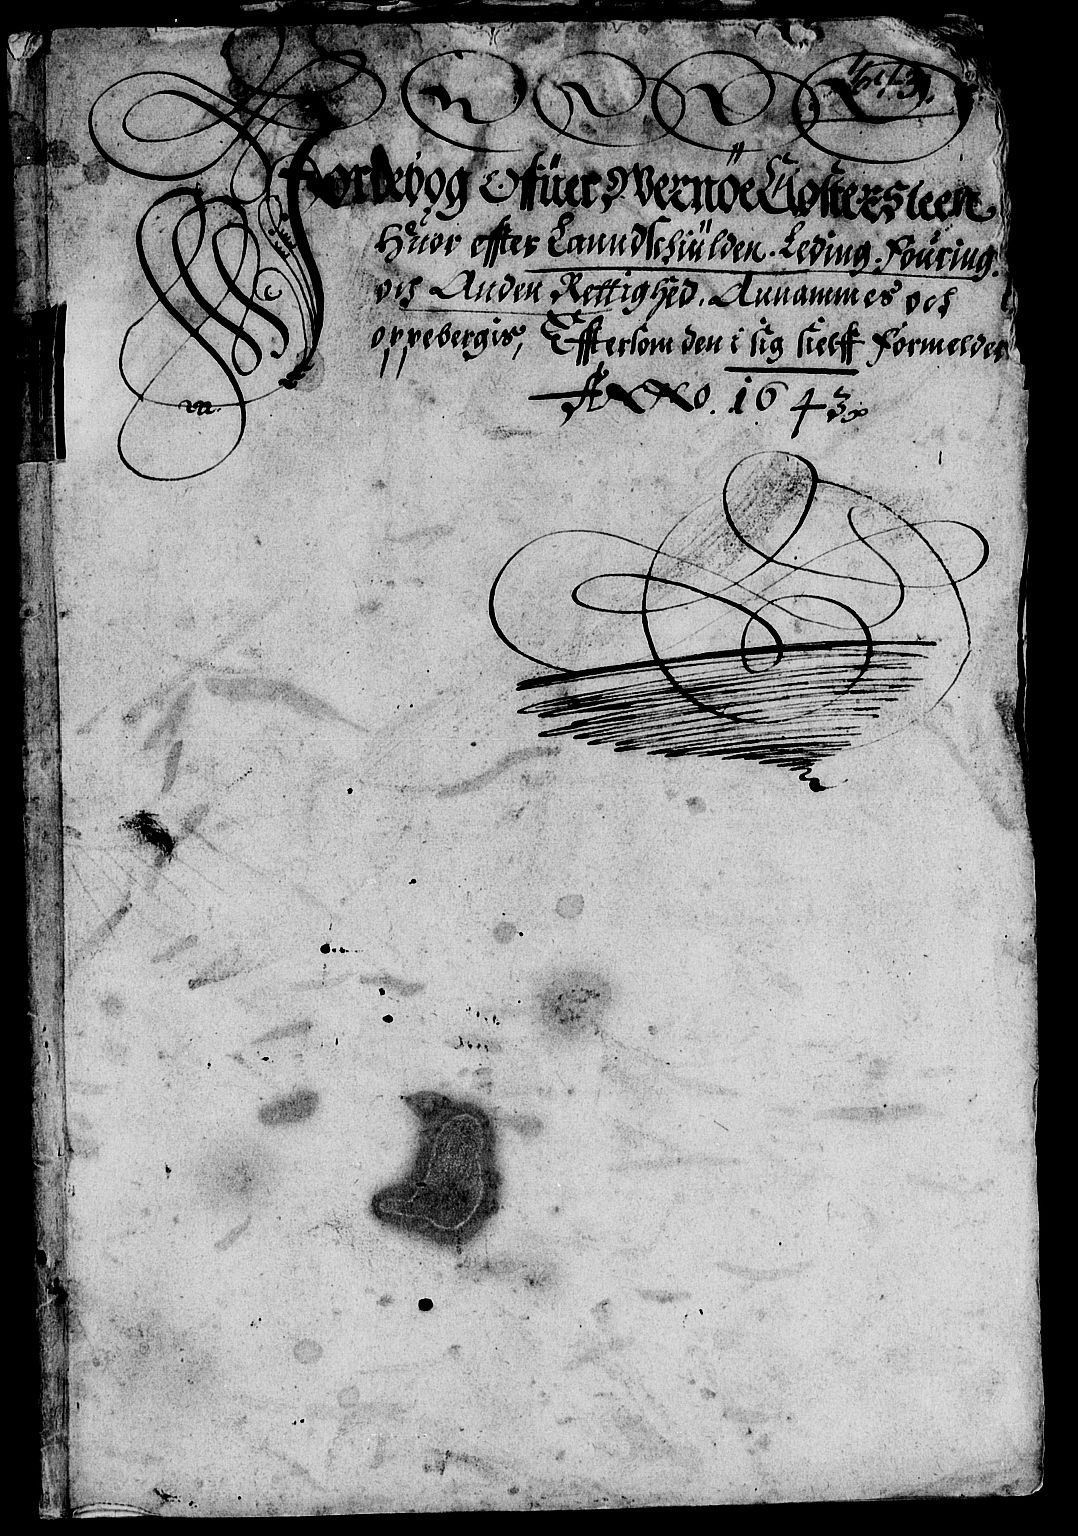 1643.
Jordebog Ofuer Wernöe Closters leen
Huor effter Lanndschiulden. Leding. Fouring.
och Anden Rettighed. Annammes och
oppebergis, Effterſom den i sig sielff formelder
Anno. 1643